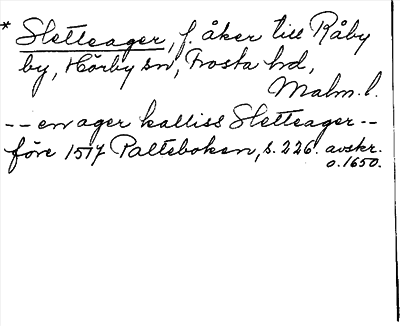 * Sletteager, f. åker till Råby
by, Hörby sn, Frosta hd,
Malm. l.
-- en ager kalliss Sletteager --
före 1517 Palteboken, s. 226. avskr.
o. 1650.